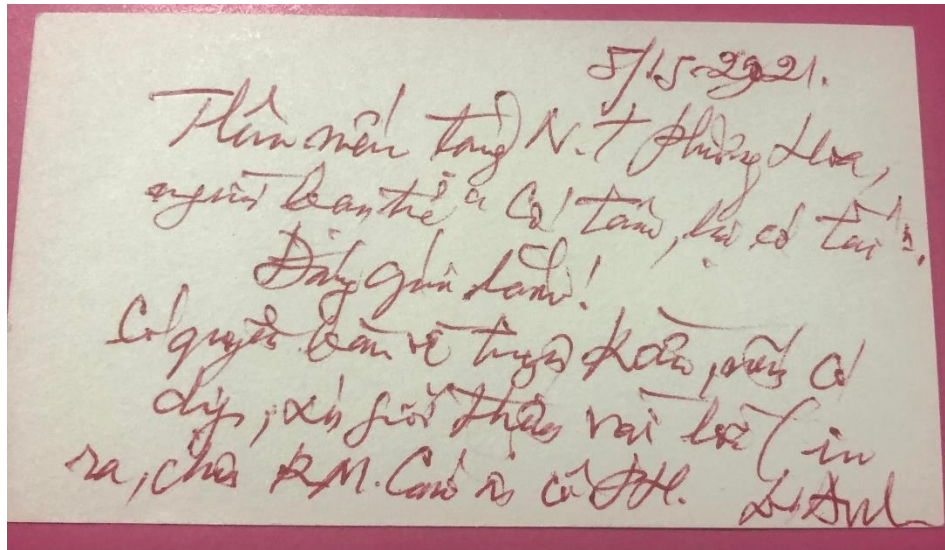 5/15-2021.
Thân mến tặng N.T Phương Hoa,
người bạn trẻ "Có tâm, lại có tài".
Đáng quí lắm!
Có quyển bàn về truyện Kiều, nếu có
dịp, xin giới thiệu vài lời (in
ra, cho K.M. Cám ơn cô PH.